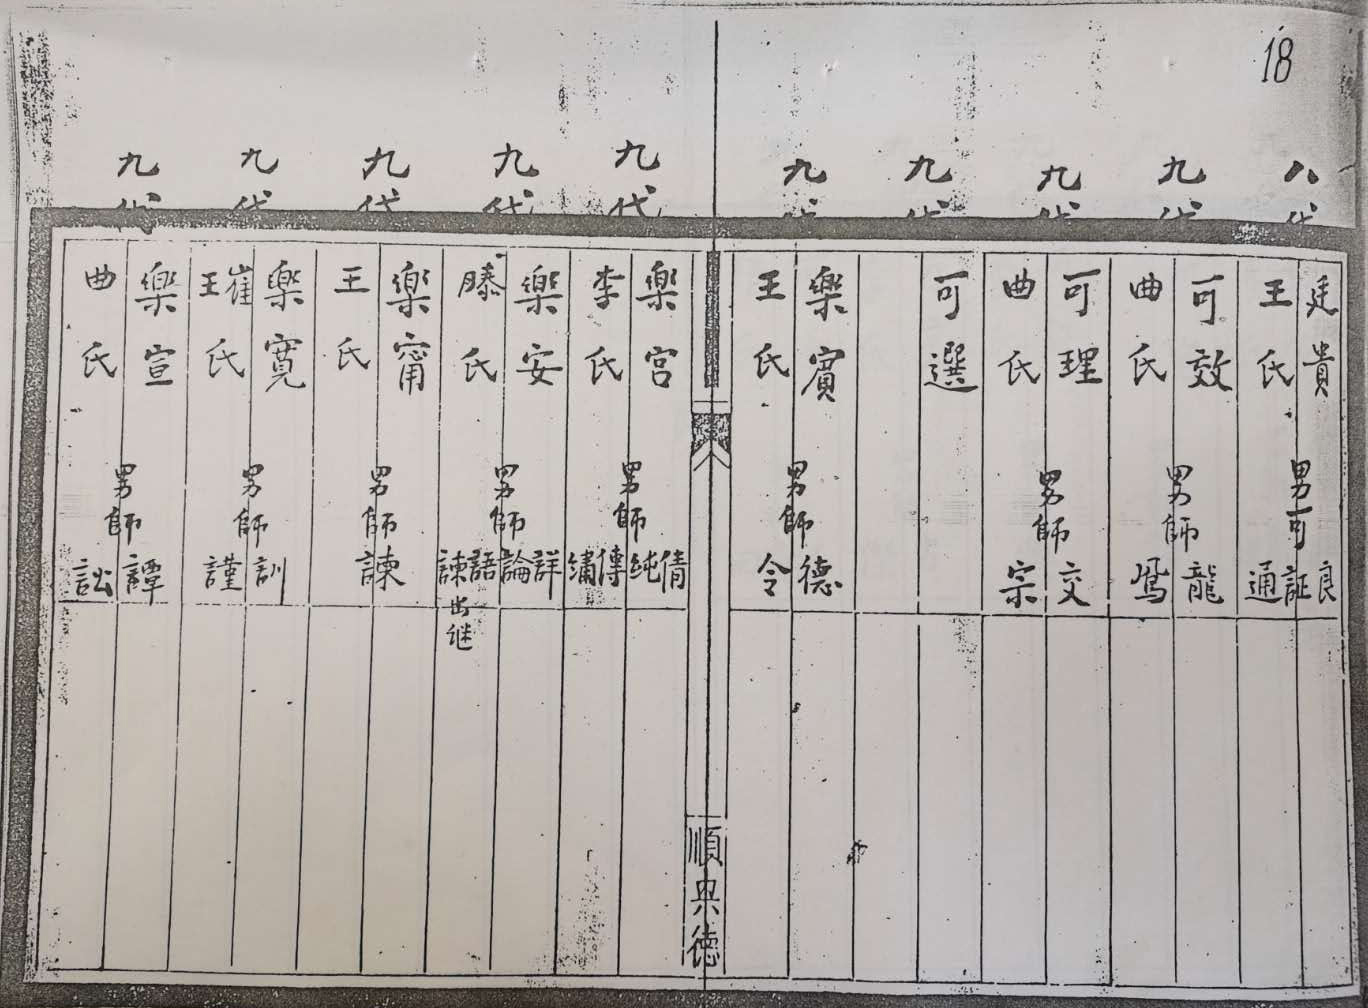 18
八代
廷貴
王氏
男可
良
証
通
九代
可效
曲氏
男師
龍
鳳
九代
可理
曲氏
男師
交
宗
九代
可選
九代
樂賓
王氏
男師
德
令
順興德
九代
樂宮
李氏
男師
倩
純
傳
繡
九代
樂安
滕氏
男師
詳
論
語
諫出继
九代
樂甯
王氏
男師
諫
九代
樂寬
崔
王氏
男師
訓
謹
九代
樂宣
曲氏
男師
譚
訟